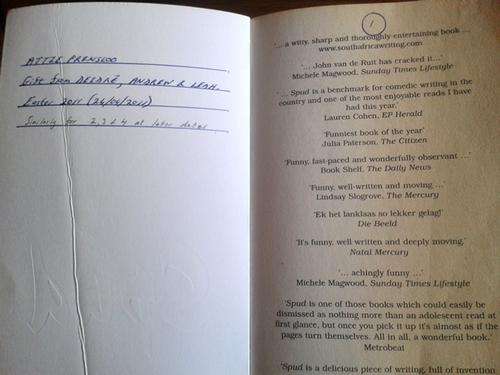 ATTIE PRENSLOO
Gift from DEIDRÉ, ANDREW & LEAH.
Easter 2011 (24/04/2011)
Similarly for 2, 3 & 4 at later dates
1
'... a witty, sharp and thoroughly entertaining book ...'
www.southafricawriting.com
'... John van de Ruit has cracked it...'
Michele Magwood, Sunday Times Lifestyle
'... Spud is a benchmark for comedic writing in the
country and one of the most enjoyable reads I have
had this year.'
Lauren Cohen, EP Herald
'Funniest book of the year'
Julia Paterson, The Citizen
'Funny, fast-paced and wonderfully observant ...'
Book Shelf, The Daily News
'Funny, well-written and moving ...'
Lindsay Slogrove, The Mercury
'Ek het lanklaas so lekker gelag!'
Die Beeld
'It's funny, well written and deeply moving.'
Natal Mercury
'... achingly funny ...'
Michele Magwood, Sunday Times Lifestyle
'Spud is one of those books which could easily be
dismissed as nothing more than an adolescent read at
first glance, but once you pick it up it's almost as if the
pages turn themselves. All in all, a wonderful book.'
Metrobeat
'Spud is a delicious piece of writing, full of invention